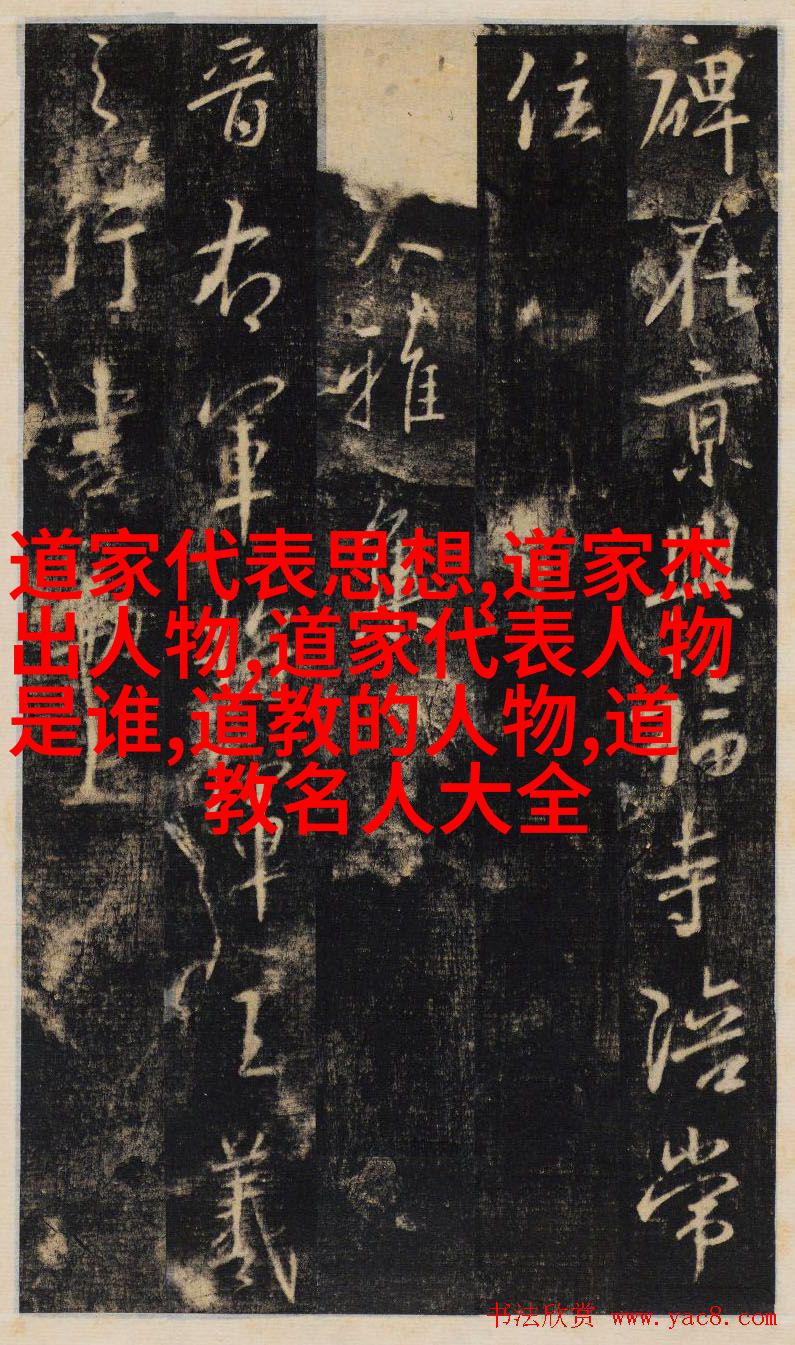 碑在京興福寺陪常
住
大雅集
晋右軍將軍王羲
之行書
道家代表思想,道家杰
出人物,道家代表人物
是谁,道教的人物,道
教名人大全
书法欣赏 www.yac8.com